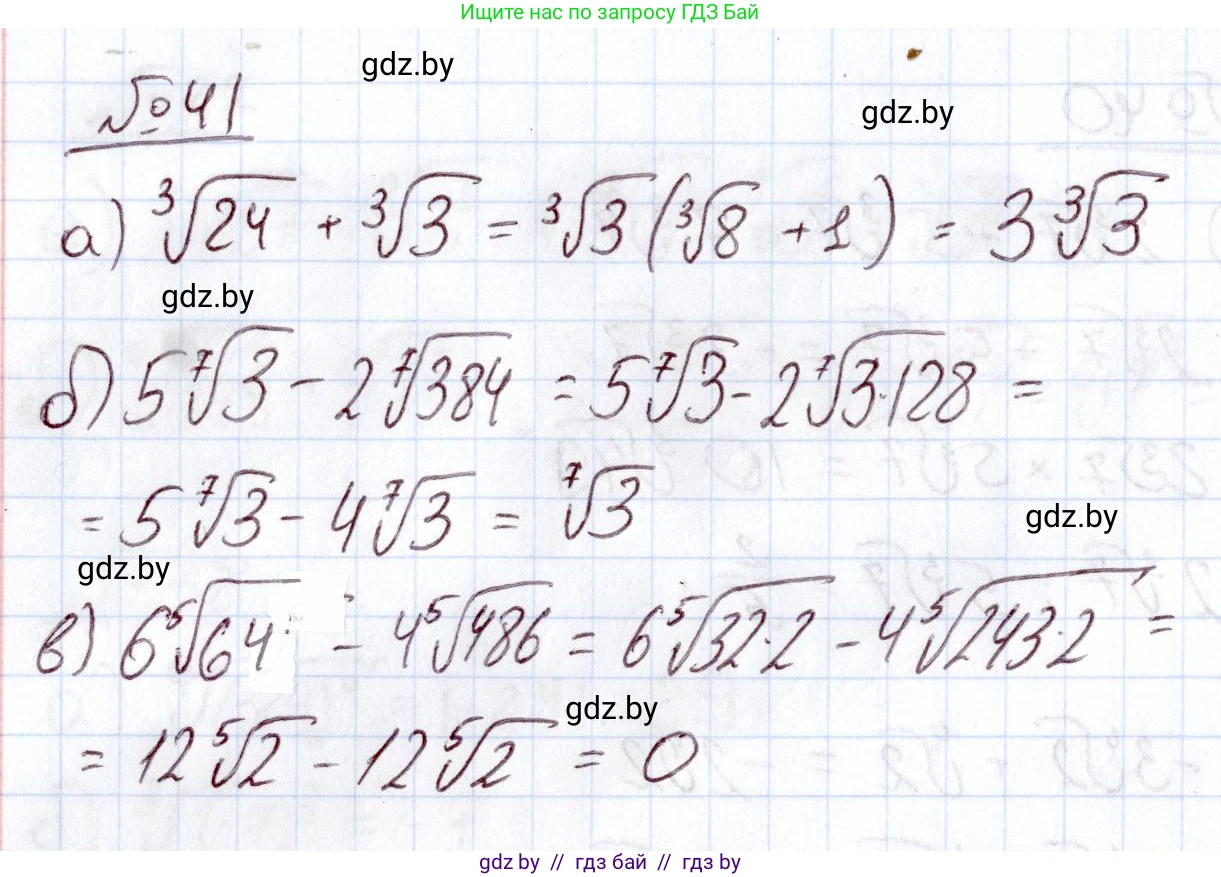 Ищите нас по запросу ГДЗ Бай
gdz.by
gdz.by
№41
а) ∛24 + ∛3 = ∛3(∛8 + 1) = 3∛3
gdz.by
б) 5⁷√3 - 2⁷√384 = 5⁷√3 - 2⁷√3·128 =
= 5⁷√3 - 4⁷√3 = ⁷√3
gdz.by
gdz.by
в) 6⁵√64 - 4⁵√486 = 6⁵√32·2 - 4⁵√243·2 =
gdz.by
= 12⁵√2 - 12⁵√2 = 0
gdz.by // гдз бай // гдз by